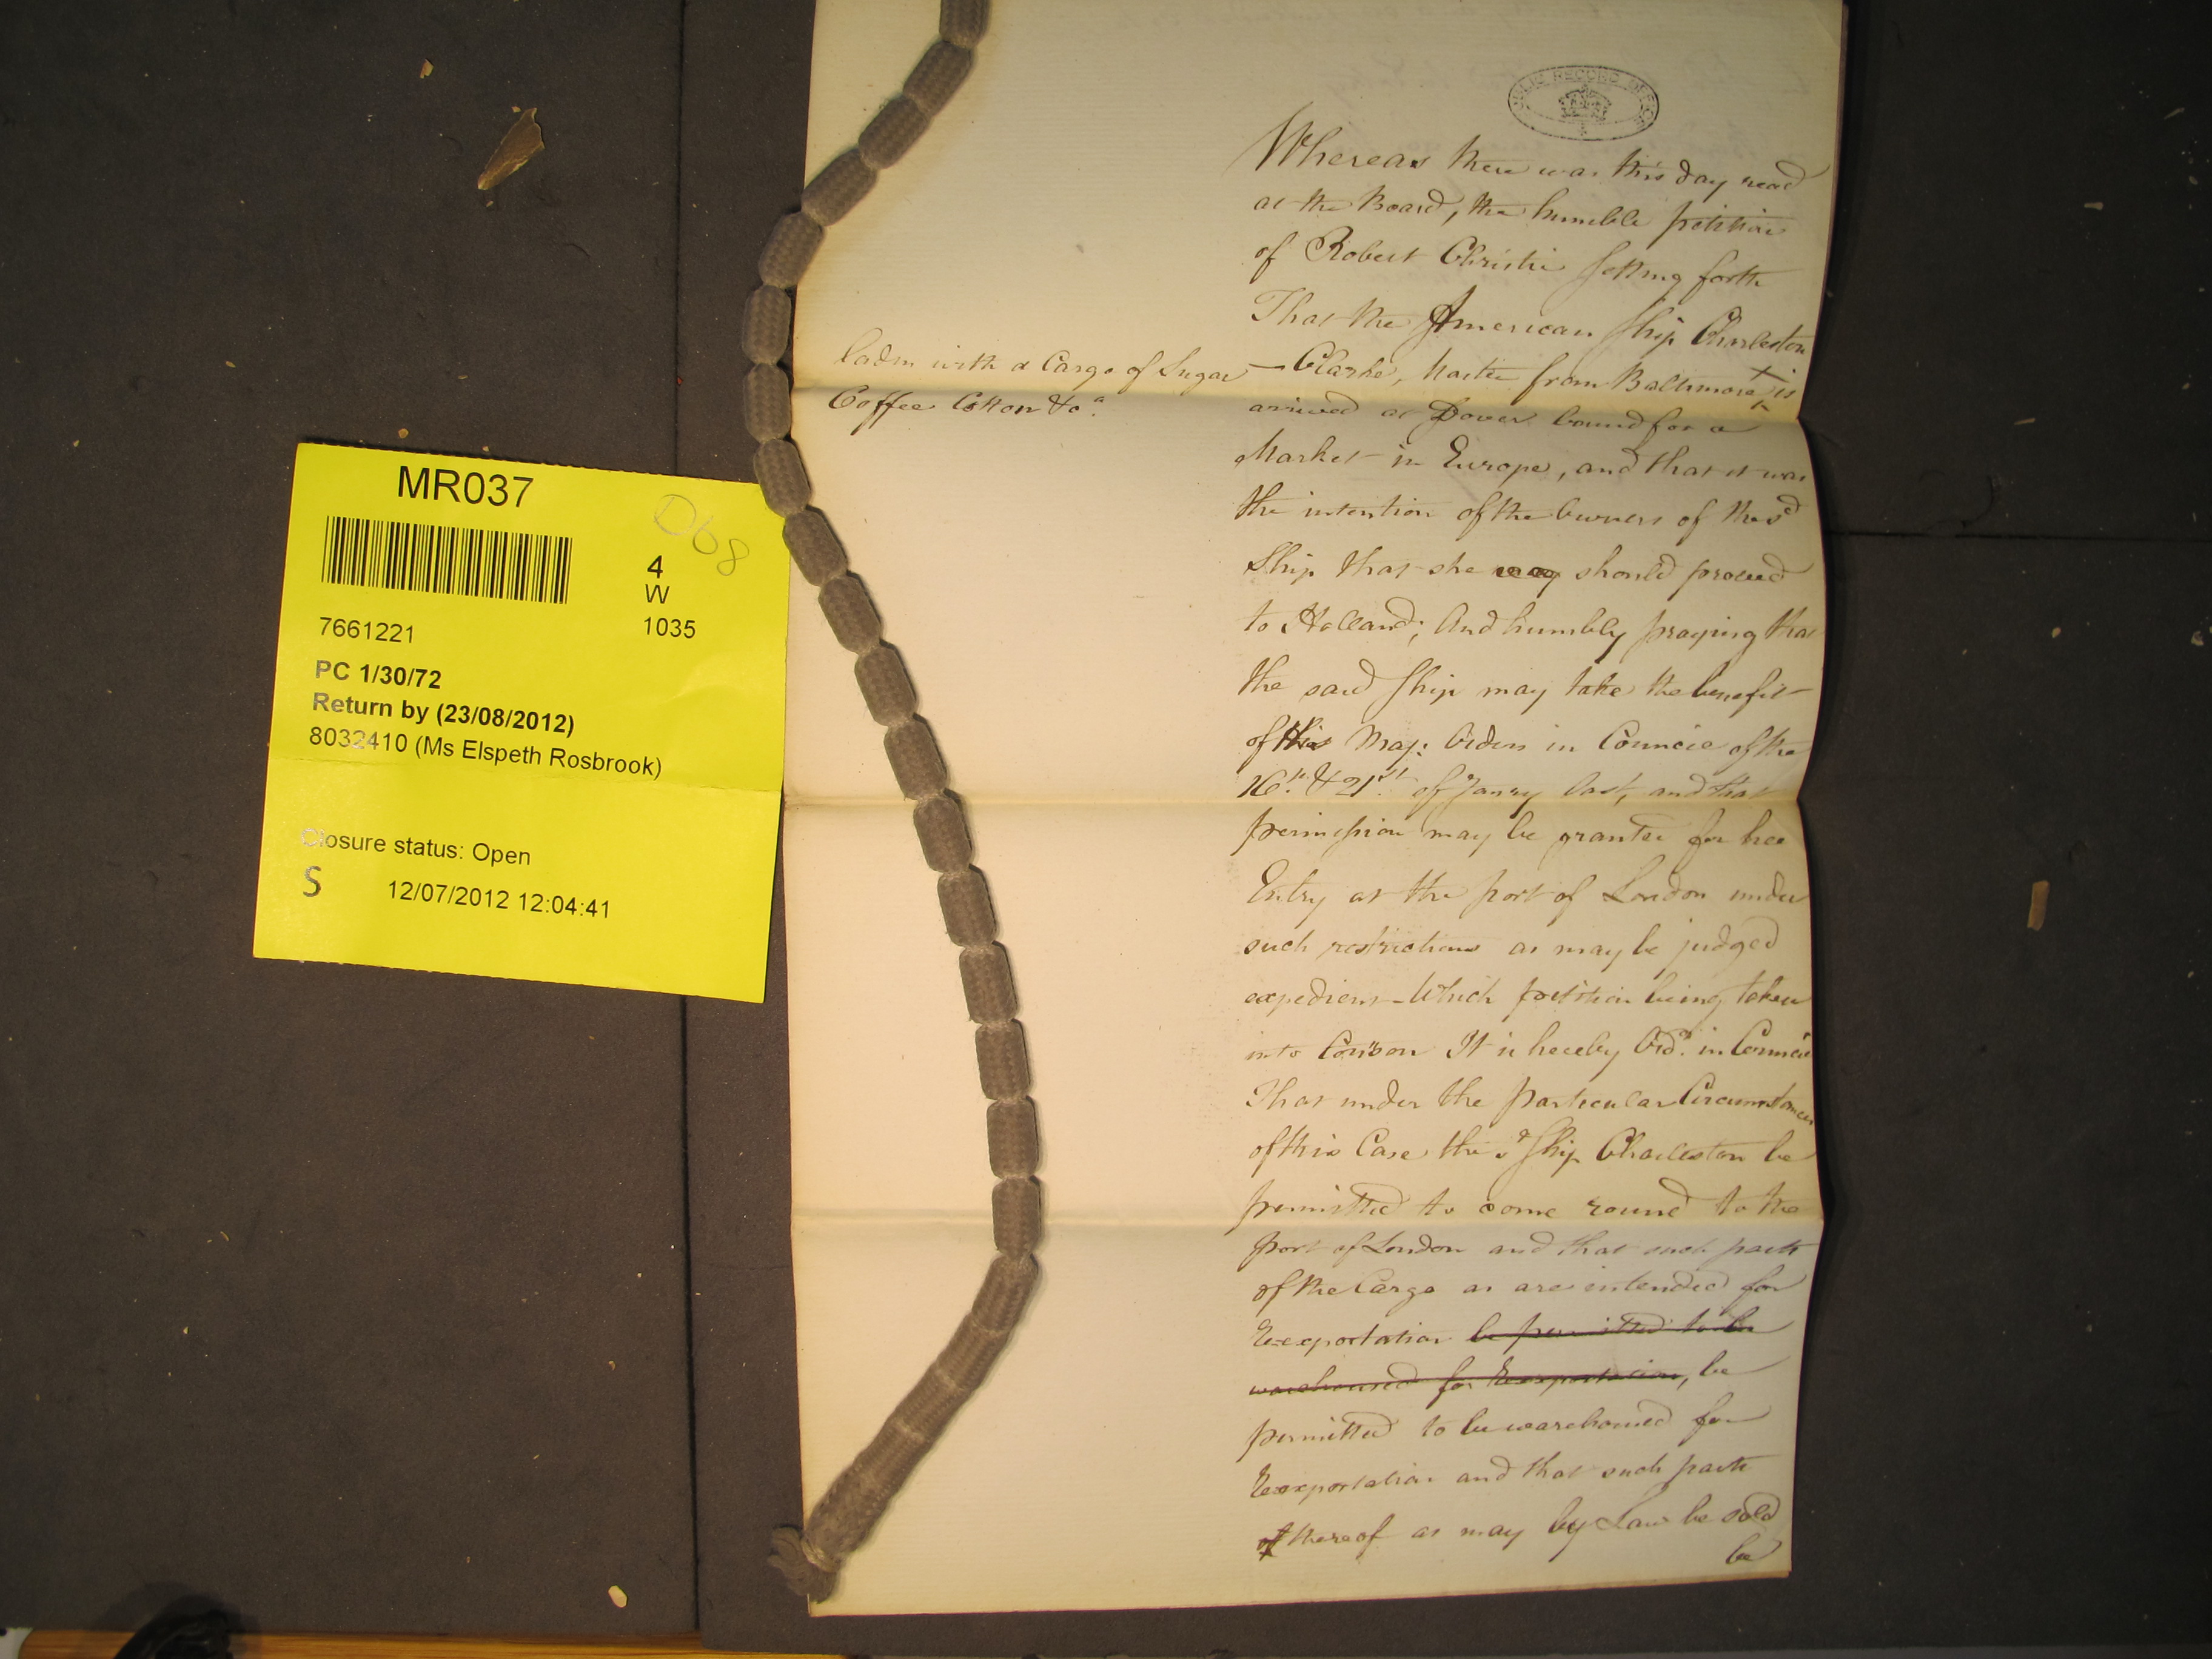 PUBLIC RECORD OFFICE
Whereas there was this day read
at the Board, the humble petition
of Robert Christie setting forth
That the American Ship Charleston
— Clarke, Master from Baltimore is
laden with a Cargo of Sugar
Coffee Cotton &c.a
arrived at Dover bound for a
Market in Europe, and that it was
the intention of the Owners of the sd
Ship that she should proceed
to Holland; And humbly praying that
the said Ship may take the benefit
of His Maj: Orders in Council of the
16th & 21st of Janry last, and that
permission may be granted for her
Entry at the port of London under
such restrictions as may be judged
expedient - Which petition being taken
into Conson It is hereby Ord.d in Council
That under the particular Circumstances
of this Case the sd Ship Charleston be
permitted to come round to the
port of London and that such parts
of the Cargo as are intended for
Reexportation be permitted to be
warehoused for Reexportation, be
permitted to be warehoused for
Reexportation and that such parts
of thereof as may by Law be sold
be
MR037
D68
4
W
1035
7661221
PC 1/30/72
Return by (23/08/2012)
8032410 (Ms Elspeth Rosbrook)
Closure status: Open
S
12/07/2012 12:04:41